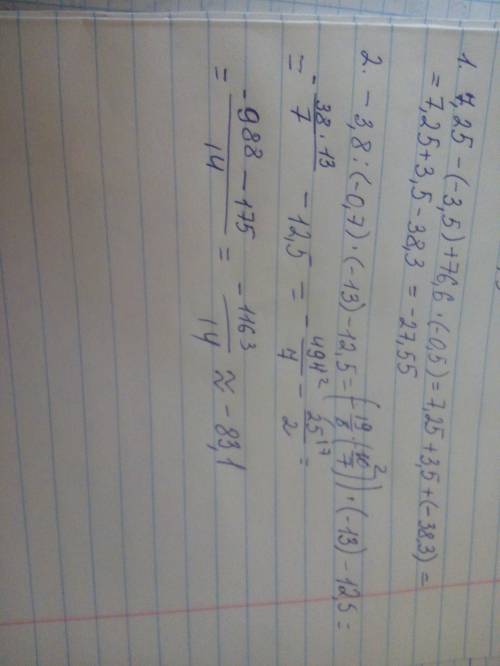 1. 7,25 - (-3,5) + 76,6 · (-0,5) = 7,25 + 3,5 + (-38,3) =
= 7,25 + 3,5 - 38,3 = -27,55
2. - 3,8 : (-0,7) · (-13) - 12,5 = (-19/ (10²/7)) · (-13) - 12,5 =
= - 38 · 13/7 - 12,5 = - 494²/7 - 25¹⁷/2 =
= -988 - 175/14 = -1163/14 ≈ - 83,1